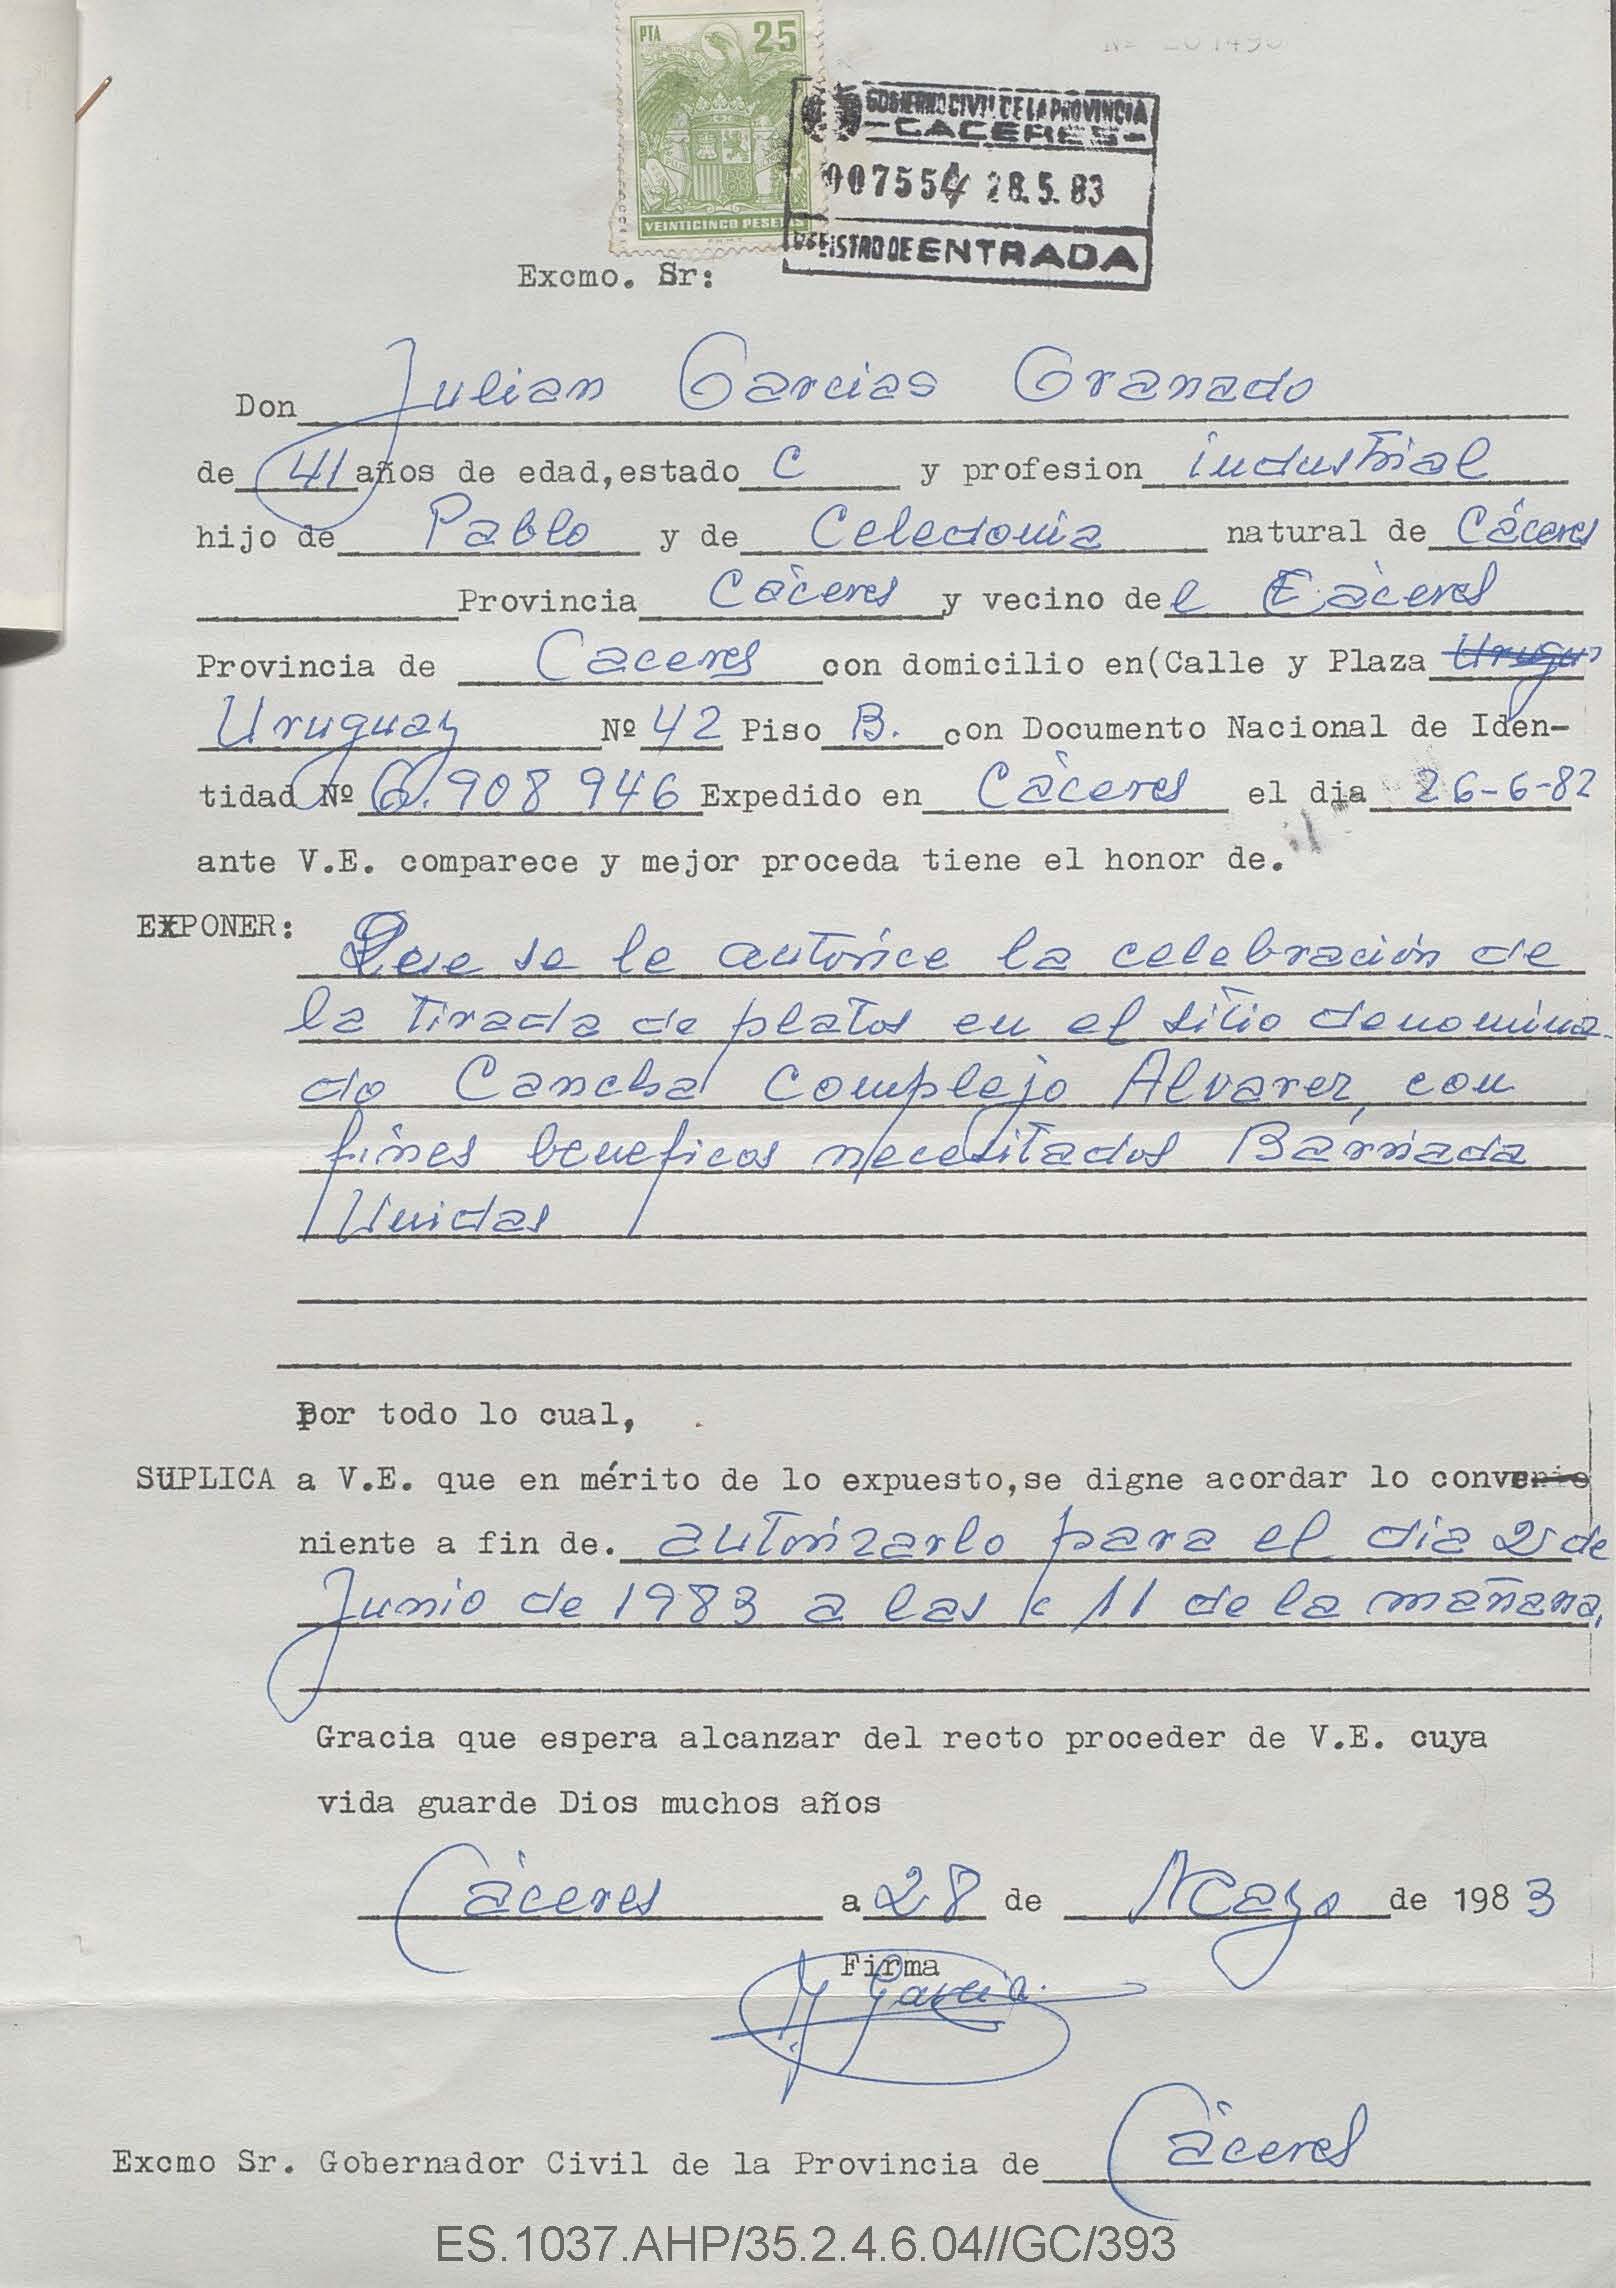 PTA 25
VEINTICINCO PESETAS
GOBIERNO CIVIL DE LA PROVINCIA
-CACERES-
007554 28.5.83
REGISTRO DE ENTRADA
Excmo. Sr:
Don Julian Garcias Granado
de 41 años de edad, estado C y profesion industrial
hijo de Pablo y de Celedonia natural de Cáceres
Provincia Cáceres y vecino de l Cáceres
Provincia de Caceres con domicilio en(Calle y Plaza Urugu
Uruguay Nº 42 Piso B. con Documento Nacional de Iden-
tidad Nº 6.908 946 Expedido en Cáceres el dia 26-6-82
ante V.E. comparece y mejor proceda tiene el honor de.
EXPONER:
Que se le autorice la celebración de
la tirada de platos en el sitio denomina-
do Cancha Complejo Alvarez, con
fines beneficos necesitados Barriada
Unidas
Por todo lo cual,
SUPLICA a V.E. que en mérito de lo expuesto,se digne acordar lo convenie
niente a fin de. autorizarlo para el dia 25 de
Junio de 1983 a las 11 de la mañana.
Gracia que espera alcanzar del recto proceder de V.E. cuya
vida guarde Dios muchos años
Cáceres a 28 de Mayo de 1983
Firma
J Garcia.
Excmo Sr. Gobernador Civil de la Provincia de Cáceres
ES.1037.AHP/35.2.4.6.04//GC/393